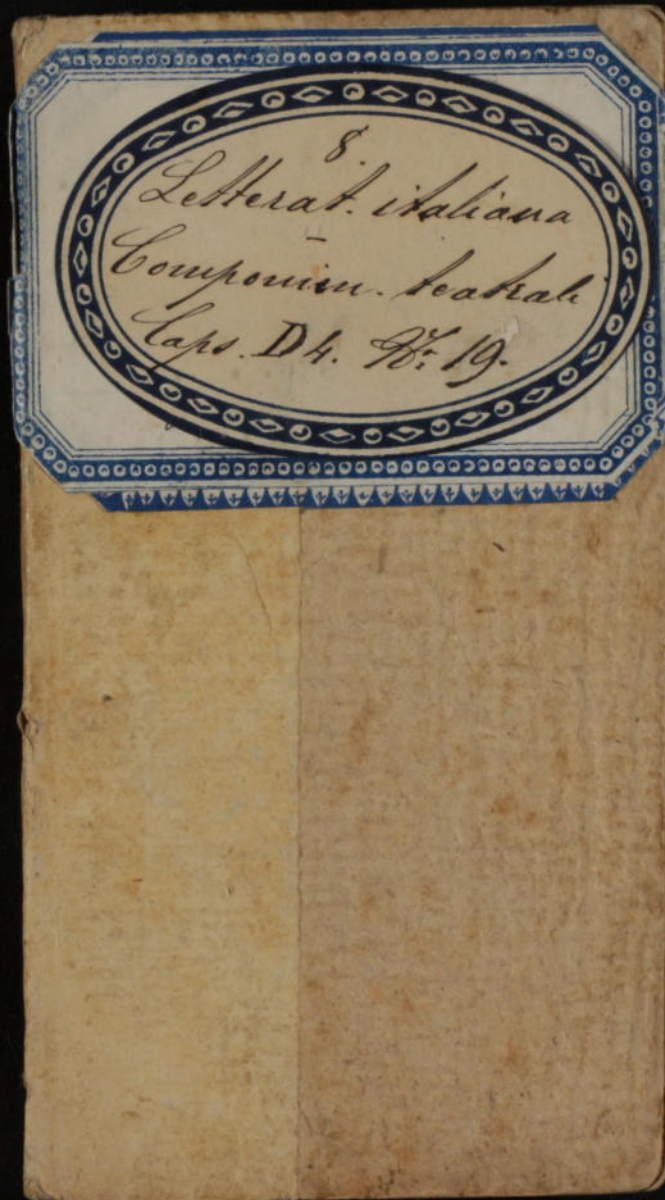 8.
Letterat. italiana
Componim. teatrali
Caps. D 4. Nr. 19.